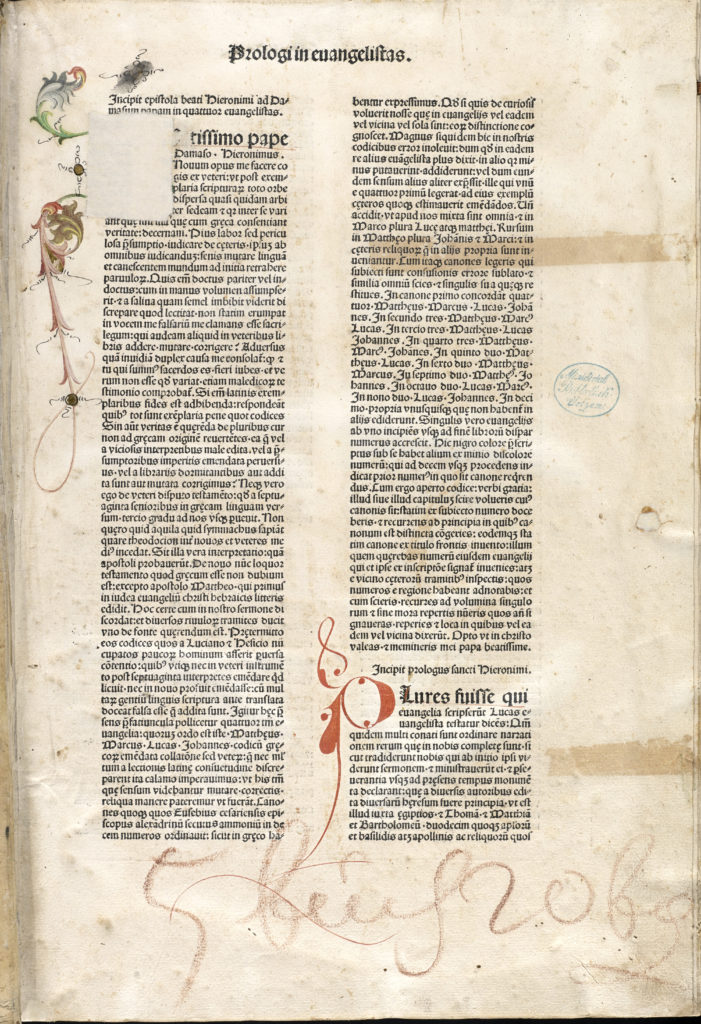 Prologi in euangelistas.
Incipit epistola beati Hieronimi ad Da-
masum papam in quattuor euangelistas.
tissimo pape
Damaso · Hieronimus.
Nouum opus me facere co
gis ex veteri: vt post exem-
plaria scripturaꝝ toto orbe
dispersa quasi quidam arbi
ter sedeam ⁊ qꝛ inter se vari
que cum gręca consenciant
veritate: decernam. Pius labor sed pericu
losa p̃sumptio· iudicare de cęteris· ip̃ꝫ ab
omnibus iudicanduꝫ: senis mutare linguã
et canescentem mundum ad inicia retrahere
paruuloꝝ. Quis em̃ doctus pariter vel in-
doctus: cum in manus volumen assumpse-
rit· ⁊ a saliua quam semel imbibit viderit di
screpare quod lectitat· non statim erumpat
in vocem me falsariũ me clamans esse sacri
legum: qui audeam aliquid in veteribus li-
bris addere· mutare· corrigere? Aduersus
quã inuidiã duplex causa me consolat̃: ꝙ ⁊
tu qui summꝰ sacerdos es· fieri iubes· et ve
rum non esse qd̃ variat· etiam maledicoꝝ te
stimonio comprobat̃. Si em̃ latinis exem-
plaribus fides est adhibenda: respondeãt
quibꝰ tot sunt exẽplaria pene quot codices
Sin aũt veritas ẽ quęrẽda de pluribus cur
non ad gręcam originẽ reuertẽtes· ea ꝗ̃ vel
a viciosis interpretibus male edita· vel a p̃
sumptoribus imperitis emendata peruersi-
us· vel a librarijs dormitantibus aut addi
ta sunt aut mutata corrigimus? Neqꝫ vero
ego de veteri disputo testamẽto: qd̃ a septu-
aginta senioribus in gręcam linguam ver-
sum· tercio gradu ad nos vsqꝫ ꝑuenit. Non
quęro quid aquila quid symmachus sapiãt
quare theodocion int̃ nouos et veteres me
diꝰ incedat. Sit illa vera interpretatio: quã
apostoli probauerũt. De nouo nũc loquor
testamento quod gręcum esse non dubium
est: excepto apostolo Mattheo· qui primus
in iudea euangeliũ christi hebraicis litteris
edidit. Hoc certe cum in nostro sermone di
scordat: et diuersos riuuloꝝ tramites ducit
vno de fonte quęrendum est. Prętermitto
eos codices quos a Luciano ⁊ Hesicio nũ
cupatos paucoꝝ hominum asserit ꝑuersa
cõtentio: quibꝰ vtiqꝫ nec in veteri instrumẽ
to post septuaginta interpretes emẽdare qd̃
licuit· nec in nouo profuit emẽdasse: cũ mul
taꝝ gentiũ linguis scriptura ante translata
doceat falsa esse ꝗ̃ addita sunt. Igitur hęc p̃
sens p̃faciuncula pollicetur quatuor tm̃ e-
uangelia: quoruꝫ ordo est iste· Mattheus·
Marcus· Lucas· Johannes· codicũ grę-
coꝝ emẽdata collatiõne sed veteꝝ: ꝗ̃ nec ml̃
tum a lectionis latinę consuetudine discre-
parent ita calamo imperauimus: vt his tm̃
quę sensum videbantur mutare· correctis·
reliqua manere pateremur vt fuerãt. Cano-
nes quoqꝫ quos Eusebius cesariensis epi-
scopus alexãdrinũ secutus ammoniũ in de
cem numeros ordinauit: sicut in gręco ha-
bentur expressimus. Qd̃ si quis de curiosis
voluerit nosse quę in euangelijs vel eadem
vel vicina vel sola sint: eoꝝ distinctione co-
gnoscet. Magnus siquidem hic in nostris
codicibus error inoleuit: dum qd̃ in eadem
re alius euãgelista plus dixit· in alio qꝛ mi-
nus putauerint· addiderunt: vel dum eun-
dem sensum alius aliter exp̃ssit· ille qui vnũ
e quattuor primũ legerat· ad eius exemplũ
cęteros quoqꝫ estimauerit emẽdãdos. Uñ
accidit· vt apud nos mixta sint omnia· ⁊ in
Marco plura Lucę atqꝫ matthei. Rursum
in Mattheo plura Johãnis ⁊ Marci: ⁊ in
cęteris reliquoꝝ ꝗ̃ in alijs propria sunt in-
ueniantur. Cum itaqꝫ canones legeris qui
subiecti sunt confusionis errore sublato· ⁊
similia omniũ scies· ⁊ singulis sua quęqꝫ re
stitues. In canone primo concordãt quat-
tuor· Mattheus· Marcus· Lucas· Johã
nes. In secundo tres· Mattheus· Marcꝰ
Lucas. In tercio tres· Mattheus· Lucas
Johannes. In quarto tres· Mattheus·
Marcꝰ· Johãnes. In quinto duo· Mat-
theus· Lucas. In sexto duo· Mattheus·
Marcus. In septimo duo· Mattheꝰ· Jo
hannes. In octauo duo· Lucas· Marcꝰ.
In nono duo· Lucas· Johannes. In deci
mo· propria vnusquisqꝫ quę non habent̃ in
alijs ediderunt. Singulis vero euangelijs
ab vno incipiẽs vsqꝫ ad finẽ librorũ dispar
numerus accrescit. Hic nigro colore p̃scri-
ptus sub se habet alium ex minio discolore
numerũ: qui ad decem vsqꝫ procedens in-
dicat prior numerꝰ in quo sit canone reqren
dus. Cum ergo aperto codice· verbi gratia:
illud siue illud capituluꝫ scire volueris cuiꝰ
canonis sit: statim ex subiecto numero doce
beris· ⁊ recurrens ad principia in quibꝰ ca-
nonum est distincta cõgeries: eodemqꝫ sta
tim canone ex titulo frontis inuento: illum
quem quęrebas numerũ eiusdem euangelij
qui et ipse ex inscriptõe signat̃ inuenies: atqꝫ
e vicino cęterorũ tramitibꝰ inspectis: quos
numeros e regione habeant adnotabis: et
cum scieris· recurres ad volumina singulo
rum ⁊ sine mora repertis numeris quos añ si
gnaueras· reperies ⁊ loca in quibus vel ea
dem vel vicina dixerũt. Opto vt in christo
valeas· ⁊ memineris mei papa beatissime.
Incipit prologus sancti Hieronimi.
PLures fuisse qui
euangelia scripserũt Lucas e-
uangelista testatur dicẽs: Qm̃
quidem multi conati sunt ordinare narrati
onem rerum quę in nobis complete sunt· si
cut tradiderunt nobis qui ab initio ipsi vi-
derunt sermonem· ⁊ ministrauerũt ei· ⁊ ꝑse-
uerantia vsqꝫ ad pręsens tempus monimẽ
ta declarant: quę a diuersis autoribus edi-
ta diuersarũ hęresum fuere principia· vt est
illud iuxta ęgiptios· ⁊ Thomã· ⁊ Matthiã
et Bartholomeũ· duodecim quoqꝫ apl̃orũ
et basilidis atqꝫ apollinis ac reliquorũ quos